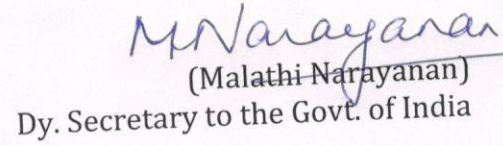 M Narayanan
(Malathi Narayanan)
Dy. Secretary to the Govt. of India